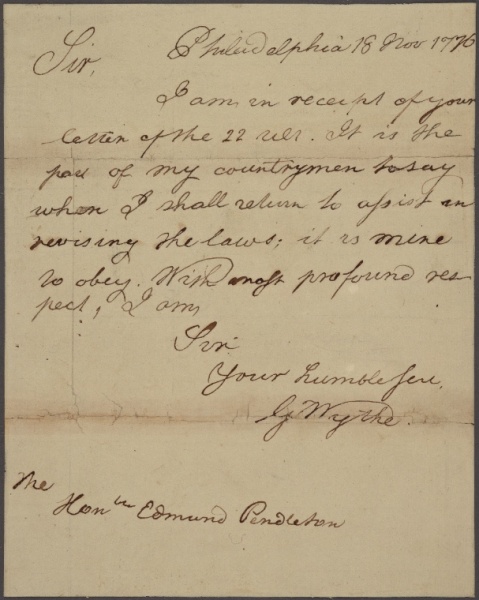 Philadelphia 18 Nov. 1776
Sir,
I am in receipt of your
letter of the 22 ult. It is the
part of my countrymen to say
when I shall return to assist in
revising the laws; it is mine
to obey. With most profound res-
pect, I am,
Sir
Your humble ser.
G Wythe.
The
Honble Edmund Pendleton